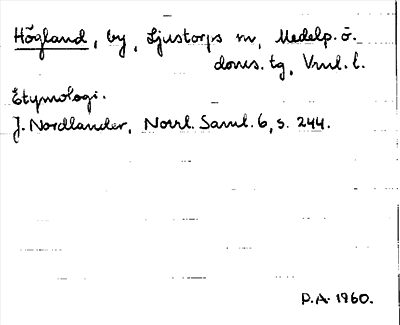 Högland, by, Ljustorps sn, Medelp. ö.
doms. tg, Vnl. l.
Etymologi.
J. Nordlander, Norrl. Saml. 6, s. 244.
P.A. 1960.